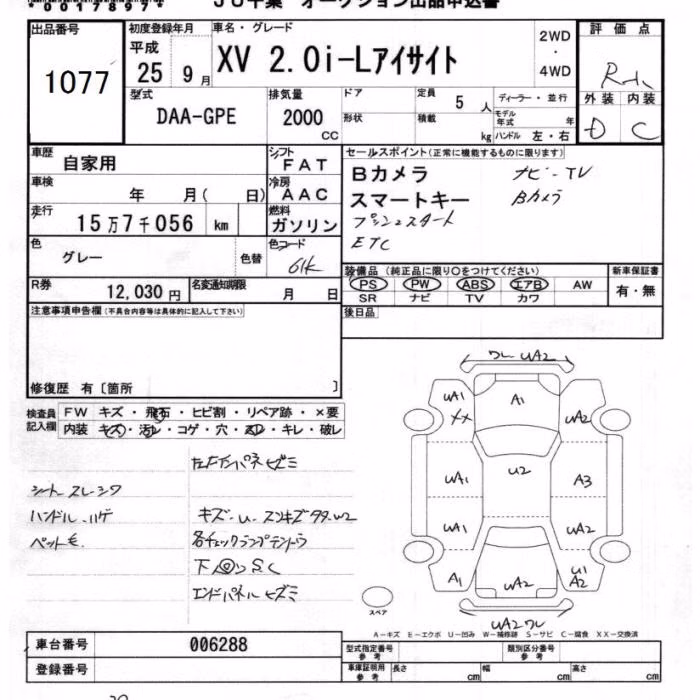 00178974 JU千葉 オークション出品申込書
出品番号
1077
初度登録年月
平成
25 9 月
車名・グレード
XV 2.0i-Lアイサイト
2WD
・
4WD
評価点
外装 内装
D C
型式
DAA-GPE
排気量
2000
CC
ドア
定員
5 人
ディーラー・並行
形状
積載
kg
モデル年式 年
ハンドル 左・右
車歴
自家用
シフト
FAT
車検
年 月( 日)
冷房
AAC
走行
15万7千056 km
燃料
ガソリン
色
グレー
色替
色コード
61K
R券
12,030 円
名変通知期限
月 日
セールスポイント(正常に機能するものに限ります)
Bカメラ ナビ-TV
スマートキー Bカメラ
プッシュスタート
ETC
装備品(純正品に限り○をつけてください)
PS PW ABS エアB AW
SR ナビ TV カワ
新車保証書
有・無
後日品
注意事項申告欄(不具合内容等は具体的に記入して下さい)
修復歴 有〔箇所 〕
検査員記入欄
FW キズ・飛石・ヒビ割・リペア跡・×要
内装 キズ・汚レ・コゲ・穴・スレ・キレ・破レ
シート スレ・シワ
ハンドル ハゲ
ペット毛
各チェックランプテントウ
エンドパネルヒズミ
ワレ UA2
UA1
XX
A1
UA2
UA1
U2
A3
UA1
UA2
A1
UA2
U1
A2
UA2 ワレ
スペア
A－キズ E－エクボ U－凹み W－補修跡 S－サビ C－腐食 XX－交換済
車台番号
006288
登録番号
型式指定番号
参考
類別区分番号
参考
車庫証明用
参考
長さ cm 幅 cm 高さ cm